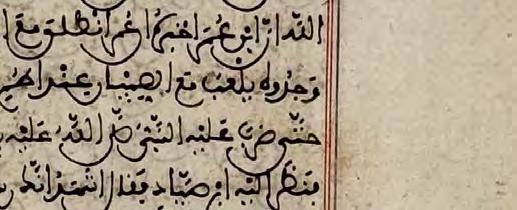 اللّه انّ ابن عمر اخبره ان عمر انطلق مع ا
وجدوه يلعب مع الصبيان عند ا
حتّى ضرب عليه النّبيّ صلّى اللّه عليه
فنظر اليه ابن صيّاد فقال اشهد انّك ر